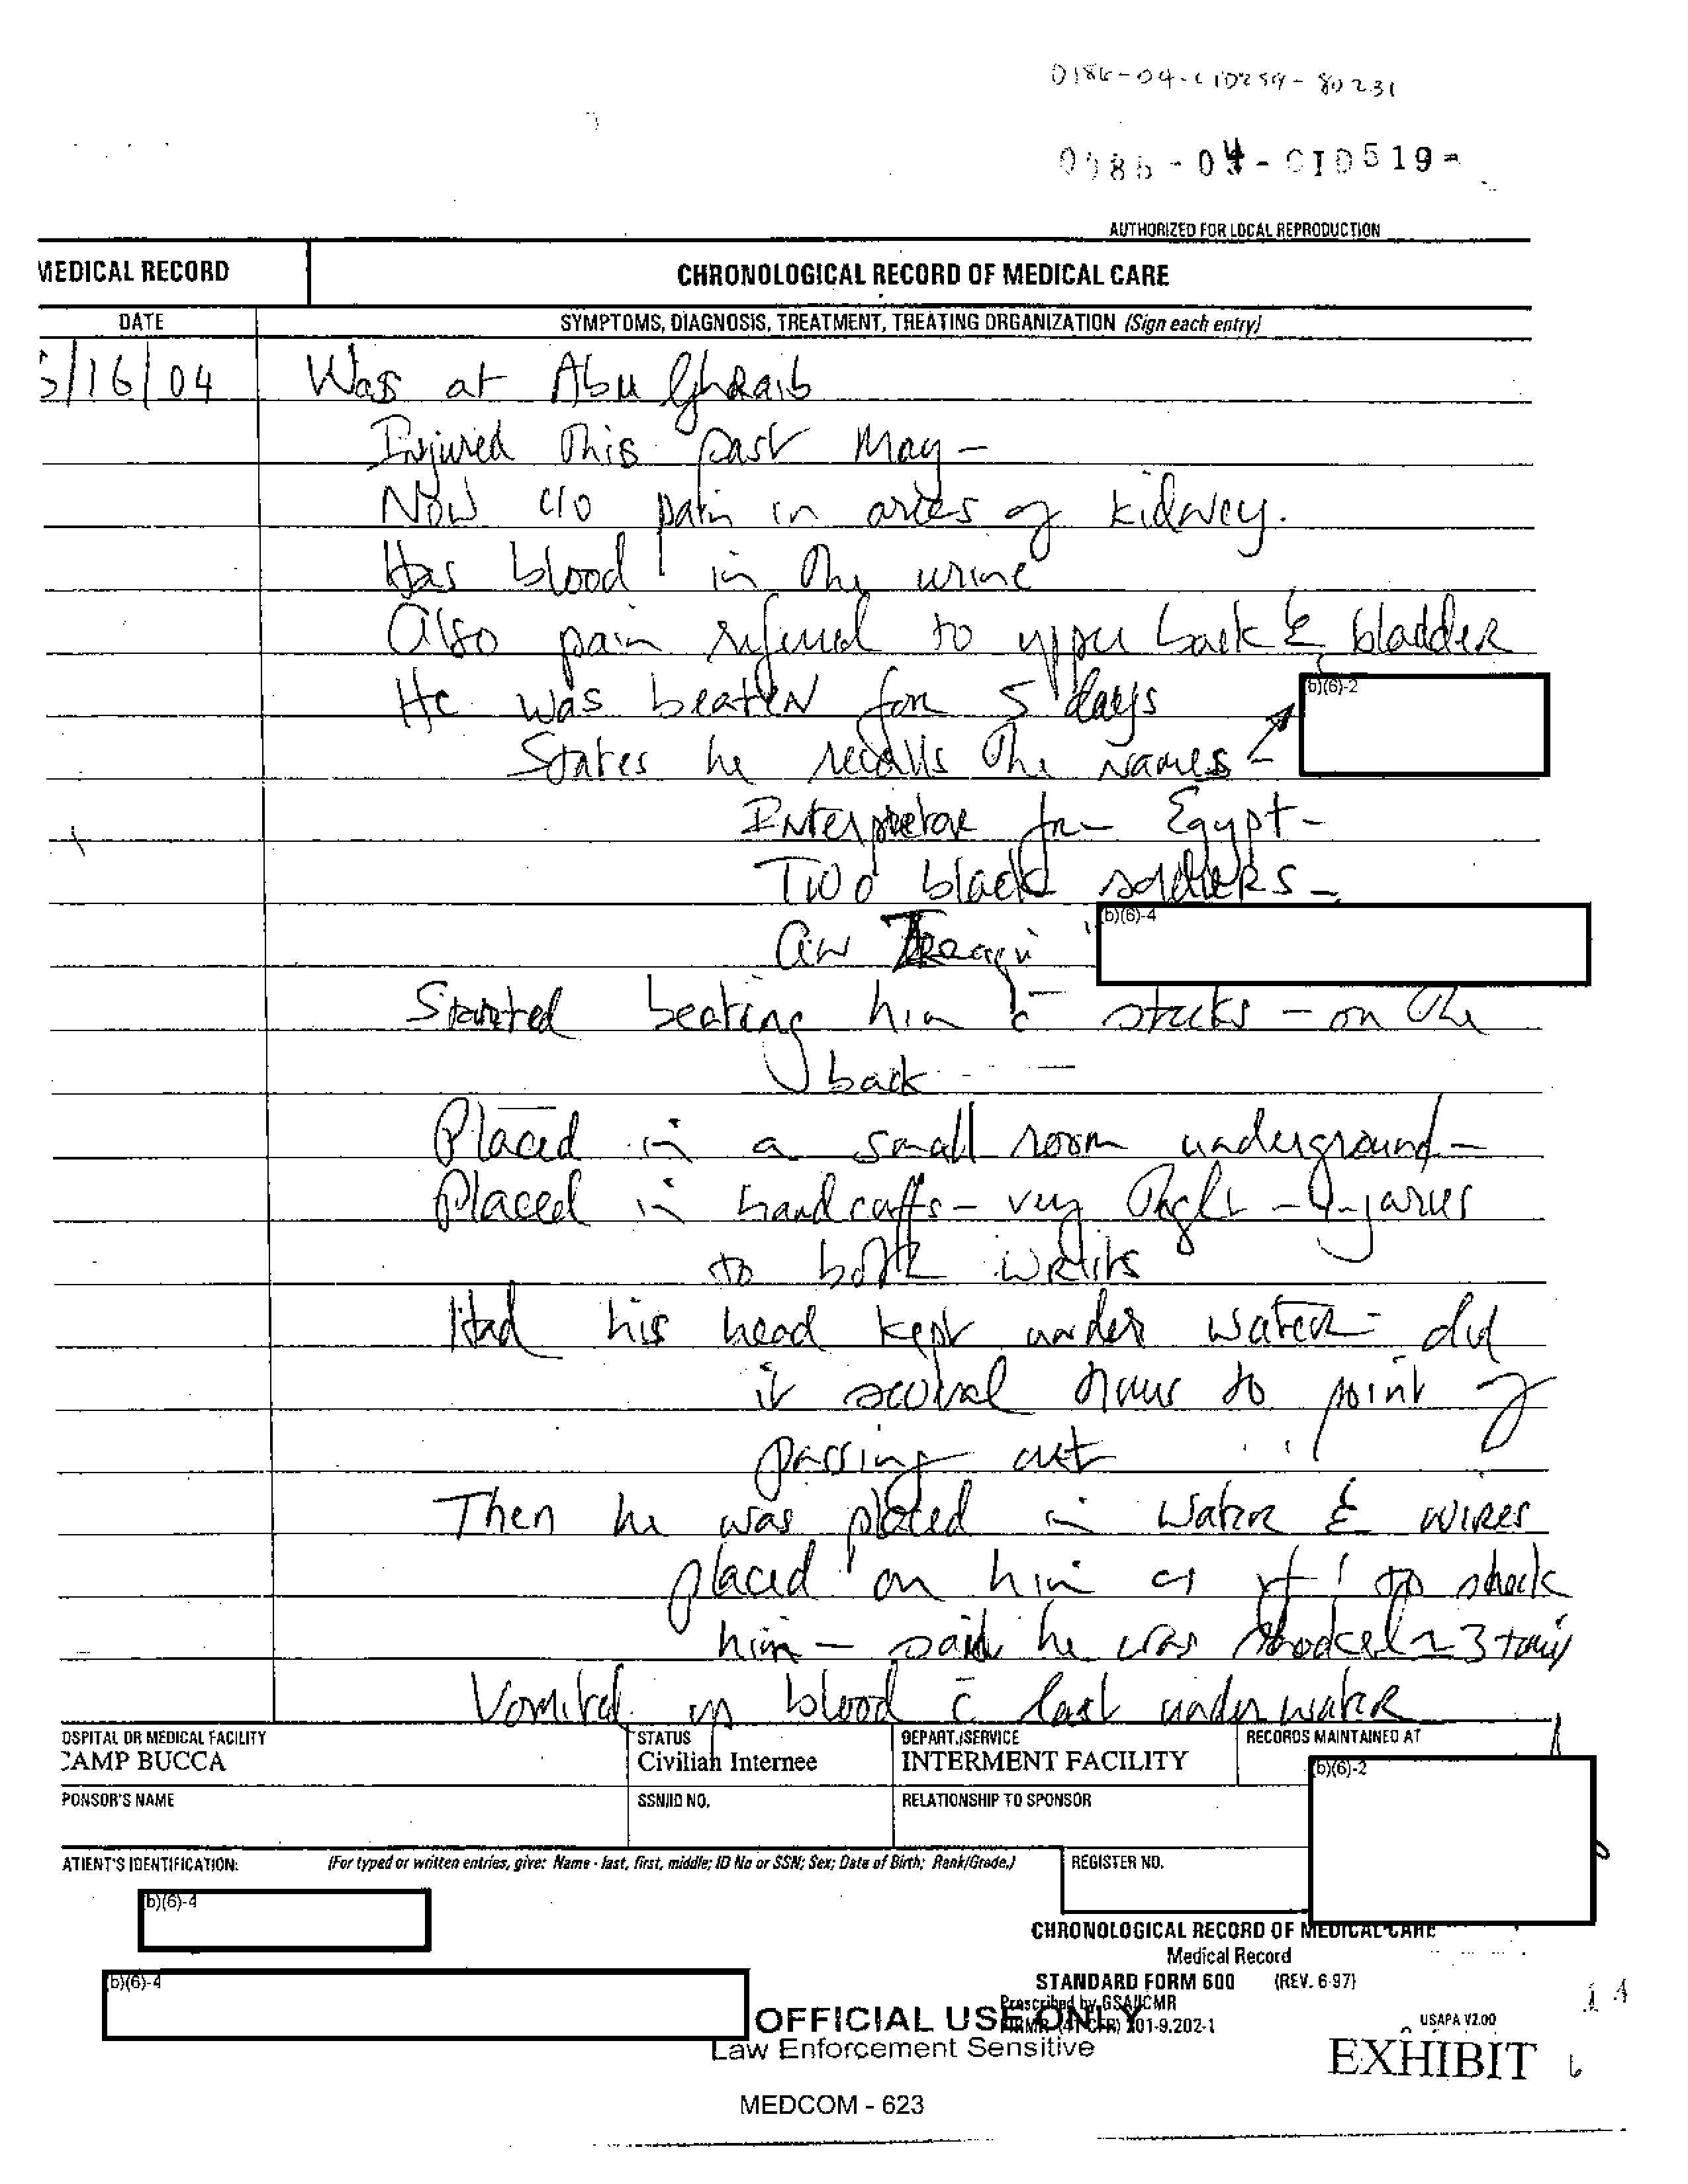 0186-04-CID259-80231
-04-CID519-
AUTHORIZED FOR LOCAL REPRODUCTION
MEDICAL RECORD
CHRONOLOGICAL RECORD OF MEDICAL CARE
DATE
SYMPTOMS, DIAGNOSIS, TREATMENT, TREATING ORGANIZATION (Sign each entry)
/16/04 Was at Abu Ghraib
Injured this past May-
Now c/o pain in of kidney.
Has blood in the urine
Also pain referred to upper back & bladder
He was beaten for 5 days
(b)(6)-2
States he recalls the names
Interpretor from Egypt-
Two black soldiers-
an Iraqi
(b)(6)-4
Started beating him c̄ sticks - on the
back
Placed in a small room underground-
Placed in handcuffs - very tight - Injuries
to both wrists
Had his head kept under water - did
it several times to point of
passing out
Then he was placed in water & wires
placed on him as if to shock
him - said he was shocked ~3
Vomited up blood c̄ last under water
OSPITAL OR MEDICAL FACILITY
CAMP BUCCA
STATUS
Civilian Internee
DEPART./SERVICE
INTERMENT FACILITY
RECORDS MAINTAINED AT
(b)(6)-2
PONSOR'S NAME
SSN/ID NO.
RELATIONSHIP TO SPONSOR
ATIENT'S IDENTIFICATION:
(For typed or written entries, give: Name - last, first, middle; ID No or SSN; Sex; Date of Birth; Rank/Grade.)
REGISTER NO.
(b)(6)-4
(b)(6)-4
CHRONOLOGICAL RECORD OF MEDICAL CARE
Medical Record
STANDARD FORM 600 (REV. 6-97)
Prescribed by GSA/ICMR
FIRMR (41 CFR) 201-9.202-1
USAPA V2.00
OFFICIAL USE ONLY
Law Enforcement Sensitive
EXHIBIT 6
MEDCOM - 623